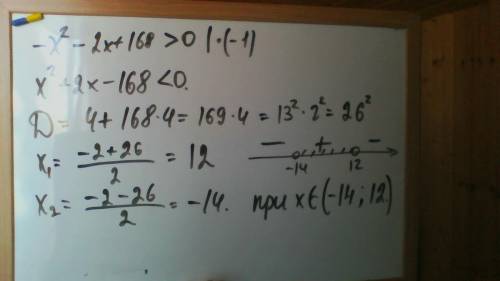 -x² - 2x + 168 > 0 | · (-1)
x² + 2x - 168 < 0.
D = 4 + 168 · 4 = 169 · 4 = 13² · 2² = 26²
x₁ = (-2 + 26)/2 = 12
- + -
-14 12
x₂ = (-2 - 26)/2 = -14. при x ∈ (-14; 12)